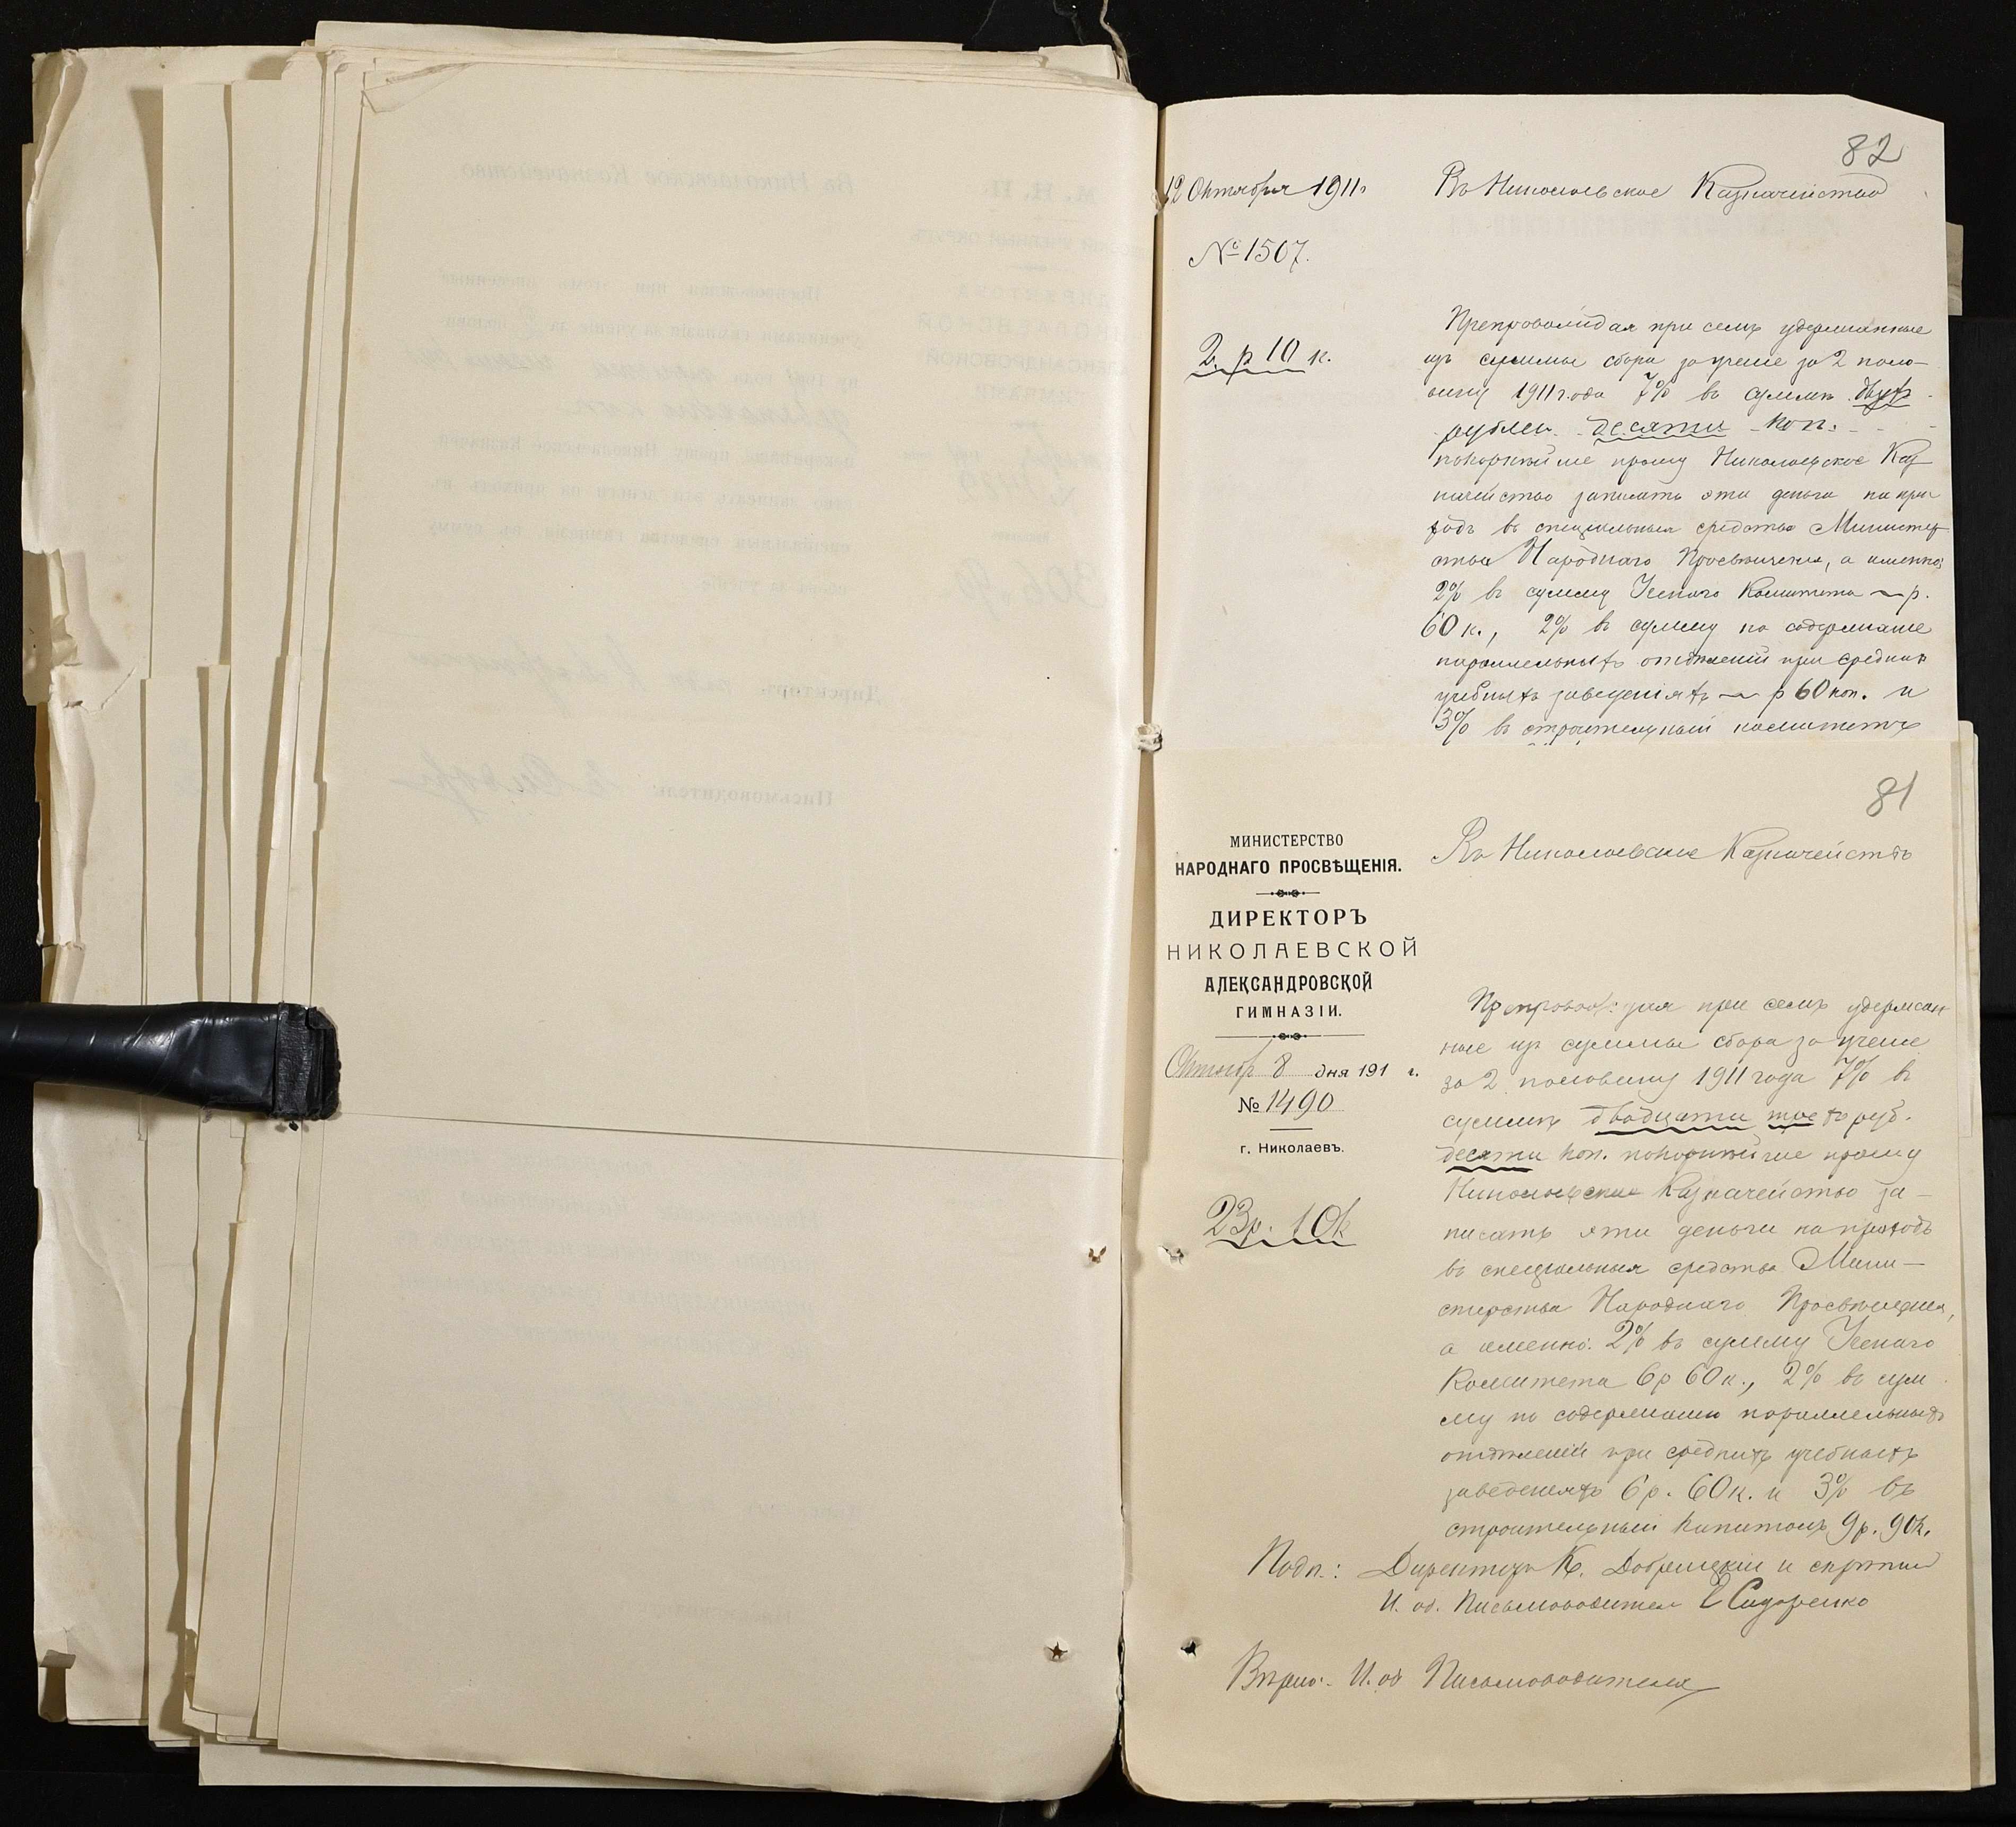 82
12 Октября 1911 г
Въ Николаевское Казначейство
№ 1507.
2 р 10 к.
Препровождая при семъ удержанные
изъ суммы сбора за ученіе за 2 поло-
вину 1911 года 7% въ суммѣ двухъ
рублей десяти коп.
покорнѣйше прошу Николаевское Каз
начейство записать эти деньги на при
ходъ въ спеціальныя средства Министер
ства Народнаго Просвѣщенія, а именно:
2% въ сумму Ученаго Комитета — р.
60 к., 2% въ сумму на содержаніе
параллельныхъ отдѣленій при среднихъ
учебныхъ заведеніяхъ — р 60 коп. и
3% въ строительный
81
МИНИСТЕРСТВО
НАРОДНАГО ПРОСВѢЩЕНІЯ.
ДИРЕКТОРЪ
НИКОЛАЕВСКОЙ
АЛЕКСАНДРОВСКОЙ
ГИМНАЗІИ.
Октябр 8 дня 191 г.
№ 1490
г. Николаевъ.
23 р. 10 к
Въ Николаевское Казначейство
Препровождая при семъ удержан
ные изъ суммы сбора за ученіе
за 2 половину 1911 года 7% въ
суммѣ двадцати трехъ руб.
десяти коп. покорнѣйше прошу
Николаевское Казначейство за-
писать эти деньги на приходъ
въ спеціальныя средства Мини-
стерства Народнаго Просвѣщенія,
а именно: 2% въ сумму Ученаго
Комитета 6 р 60 к., 2% въ сум
му на содержаніе параллельныхъ
отдѣленій при среднихъ учебныхъ
заведеніяхъ 6 р. 60 к. и 3% въ
строительный капиталъ 9 р. 90 к.
Подп.: Директоръ К. Добрицкій и скрѣпил
И. об. Письмоводителя Е Сидоренко
Вѣрно: И. об Письмоводителя